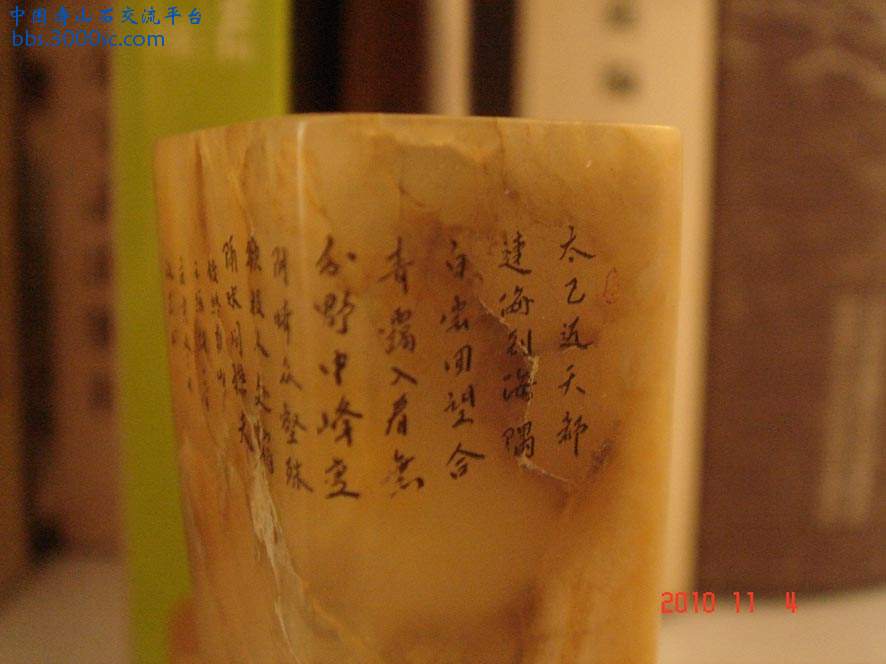 中国寿山石交流平台
bbs.3000ic.com
太乙近天都
連海到海隅
白雲回望合
青靄入看無
分野中峰变
阴晴众壑殊
欲投人处宿
隔水问樵夫
2010 11 4